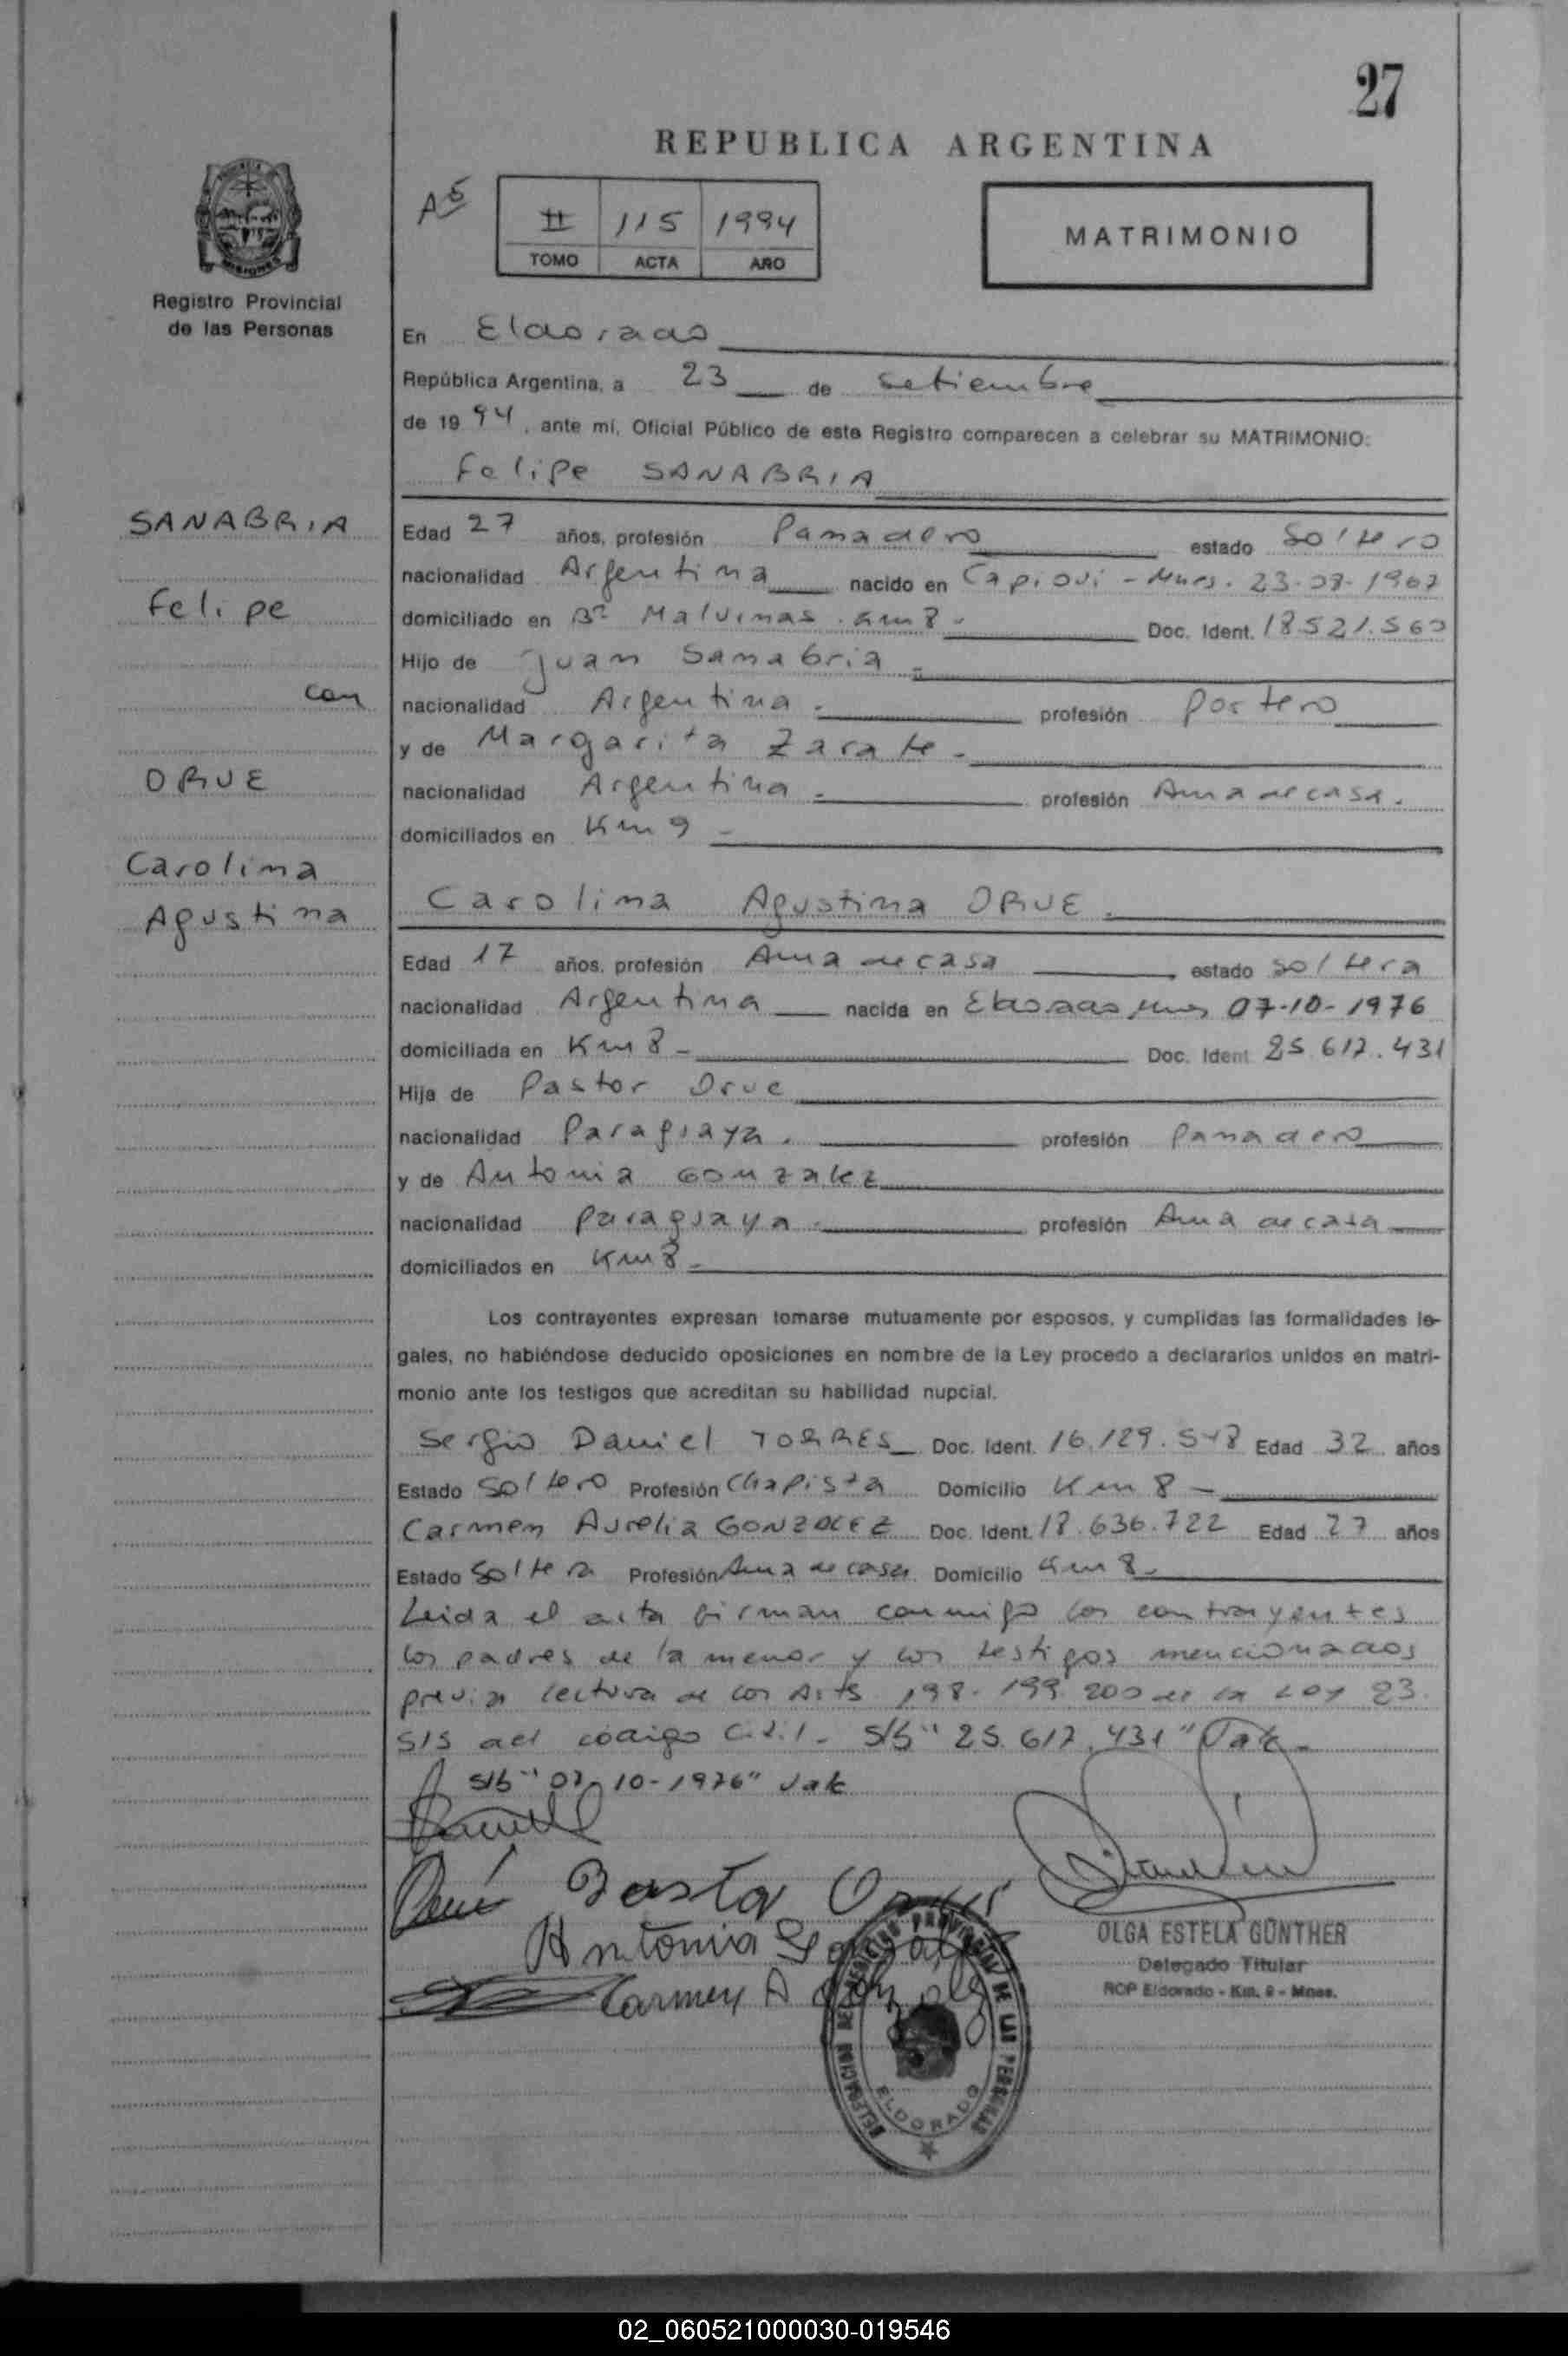 27
REPUBLICA ARGENTINA
MATRIMONIO
II 115 1994
TOMO ACTA AÑO
MISIONES
Registro Provincial
de las Personas
En Eldorado
República Argentina, a 23 de setiembre
de 1994, ante mí, Oficial Público de este Registro comparecen a celebrar su MATRIMONIO:
Felipe SANABRIA
SANABRIA
Felipe
con
ORUE
Carolina
Agustina
Edad 27 años, profesión Panadero estado soltero
nacionalidad Argentina nacido en Capioví - Mnes. 23-08-1967
domiciliado en Bº Malvinas. Km 8 - Doc. Ident. 18.521.560
Hijo de Juan Sanabria -
nacionalidad Argentina. profesión portero
y de Margarita Zarate -
nacionalidad Argentina. profesión Ama de casa.
domiciliados en Km 9 -
Carolina Agustina ORUE.
Edad 17 años, profesión Ama de casa estado soltera
nacionalidad Argentina nacida en Eldorado, Mnes 07-10-1976
domiciliada en Km 8 - Doc. Ident. 25.617.431
Hija de Pastor Orue
nacionalidad Paraguaya. profesión Panadero
y de Antonia GONZALEZ
nacionalidad paraguaya. profesión Ama de casa
domiciliados en Km 8 -
Los contrayentes expresan tomarse mutuamente por esposos, y cumplidas las formalidades le-
gales, no habiéndose deducido oposiciones en nombre de la Ley procedo a declararlos unidos en matri-
monio ante los testigos que acreditan su habilidad nupcial.
Sergio Daniel TORRES Doc. Ident. 16.129.548 Edad 32 años
Estado Soltero Profesión Chapista Domicilio Km 8 -
Carmen Aurelia GONZALEZ Doc. Ident. 18.636.722 Edad 27 años
Estado Soltera Profesión Ama de casa Domicilio Km 8 -
Leida el acta firman conmigo los contrayentes
los padres de la menor y los testigos mencionados
previa lectura de los Arts 198-199 200 de la Ley 23.
515 del código Civil - S/b "25.617.431" Vale -
s/b "07-10-1976" Vale
Orué Pasto Orué
Antonia Gonzalez
Carmen A Gonzalez
OLGA ESTELA GÜNTHER
Delegado Titular
RCP Eldorado - Km. 9 - Mnes.
ELDORADO
02_060521000030-019546